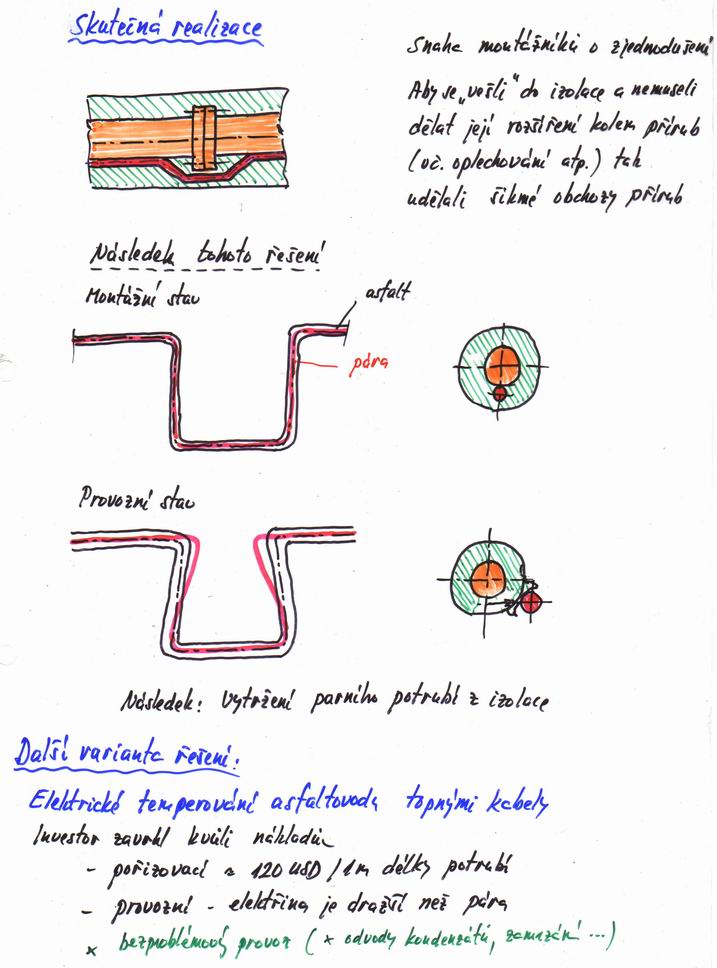 Skutečná realizace
Snaha montážníků o zjednodušení
Aby se „vešli" do izolace a nemuseli
dělat její rozšíření kolem přírub
(vč. oplechování atp.) tak
udělali šikmé obchozy přírub
Následek tohoto řešení
Montážní stav
asfalt
pára
Provozní stav
Následek: Vytržení parního potrubí z izolace
Další varianta řešení:
Elektrické temperování asfaltovodu topnými kabely
Investor zavrhl kvůli nákladům
- pořizovací ≈ 120 USD/1m délky potrubí
- provozní - elektřina je dražší než pára
x bezproblémový provoz (x odvody kondenzátů, zamrzání ...)